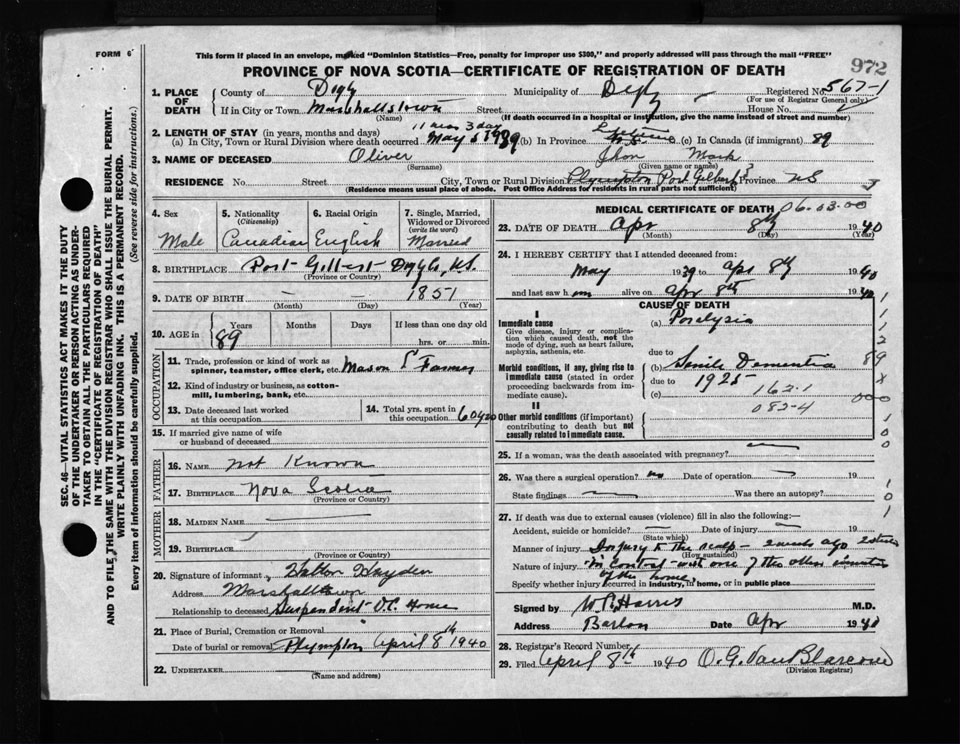 FORM 6
This form if placed in an envelope, marked "Dominion Statistics—Free, penalty for improper use $300," and properly addressed will pass through the mail "FREE"
972
PROVINCE OF NOVA SCOTIA—CERTIFICATE OF REGISTRATION OF DEATH
1. PLACE OF DEATH
County of Digby Municipality of Digby Registered No. 567-1
(For use of Registrar General only)
If in City or Town Marshalltown Street House No.
(Name) (If death occurred in a hospital or institution, give the name instead of street and number)
2. LENGTH OF STAY (in years, months and days) 11 mos 3 day Lifetime
(a) In City, Town or Rural Division where death occurred May 5 1939 (b) In Province N.S. (c) In Canada (if immigrant) 89
3. NAME OF DECEASED Oliver Jhon Mark
(Surname) (Given name or names)
RESIDENCE No. Street City, Town or Rural Division Plympton Port Gilbert Province NS 3
(Residence means usual place of abode. Post Office Address for residents in rural parts not sufficient)
4. Sex
Male
5. Nationality
(Citizenship)
Canadian
6. Racial Origin
English
7. Single, Married, Widowed or Divorced
(write the word)
Married
8. BIRTHPLACE Port Gilbert Digby Co, N.S.
(Province or Country)
9. DATE OF BIRTH — — 1851
(Month) (Day) (Year)
10. AGE in
Years Months Days If less than one day old
89 hrs. or min.
OCCUPATION
11. Trade, profession or kind of work as
spinner, teamster, office clerk, etc. Mason & Farmer
12. Kind of industry or business, as cotton-
mill, lumbering, bank, etc.
13. Date deceased last worked
at this occupation
14. Total yrs. spent in
this occupation
15. If married give name of wife
or husband of deceased
FATHER
16. NAME not Known
17. BIRTHPLACE Nova Scotia
(Province or Country)
MOTHER
18. MAIDEN NAME
19. BIRTHPLACE
(Province or Country)
20. Signature of informant Walton Hayden
Address Marshalltown
Relationship to deceased
21. Place of Burial, Cremation or Removal
Date of burial or removal Plympton April 8th 1940
22. UNDERTAKER
(Name and address)
MEDICAL CERTIFICATE OF DEATH 06.03.00
23. DATE OF DEATH Apr 8th 1940
(Month) (Day) (Year)
24. I HEREBY CERTIFY that I attended deceased from:
May 1939 to Apr 8th 1940
and last saw him alive on Apr 8th 1940
CAUSE OF DEATH
I
Immediate cause
Give disease, injury or complication which caused death, not the mode of dying, such as heart failure, asphyxia, asthenia, etc.
(a) Paralysis
due to
Morbid conditions, if any, giving rise to immediate cause (stated in order proceeding backwards from immediate cause).
(b) Senile Dementia
due to 1925
(c) 162.1
082-4
II
Other morbid conditions (if important) contributing to death but not causally related to immediate cause.
25. If a woman, was the death associated with pregnancy?
26. Was there a surgical operation? no Date of operation 19
State findings Was there an autopsy?
27. If death was due to external causes (violence) fill in also the following:—
Accident, suicide or homicide? Date of injury 19
(State which)
Manner of injury Injury to the scalp — 2 weeks ago
(How sustained)
Nature of injury in contact with one of the other inmates
of the home.
Specify whether injury occurred in industry, in home, or in public place
Signed by W.R. Harris M.D.
Address Date Apr 1940
28. Registrar's Record Number
29. Filed April 8th 1940 O. G. VanBlarcom
(Division Registrar)
SEC. 46—VITAL STATISTICS ACT MAKES IT THE DUTY
OF THE UNDERTAKER OR PERSON ACTING AS UNDER-
TAKER TO OBTAIN ALL THE PARTICULARS REQUIRED
IN THE "CERTIFICATE OF REGISTRATION OF DEATH"
AND TO FILE THE SAME WITH THE DIVISION REGISTRAR WHO SHALL ISSUE THE BURIAL PERMIT.
WRITE PLAINLY WITH UNFADING INK. THIS IS A PERMANENT RECORD.
Every item of information should be carefully supplied. (See reverse side for instructions.)